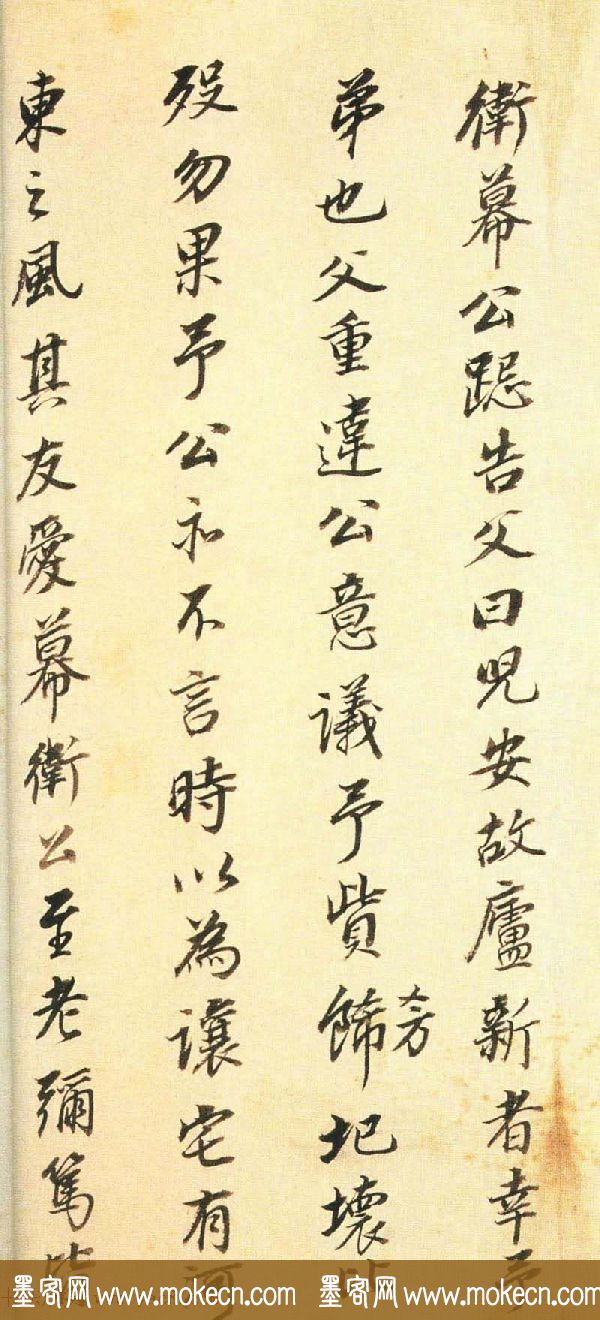 衛幕公跽告父曰兒安故廬新者幸予
弟也父重違公意議予貲飾圮壞
旁
歿勿果予公和不言時以為讓宅有河
東之風其友愛幕衛公至老彌篤皆
墨客网 www.mokecn.com 墨客网 www.mokecn.com